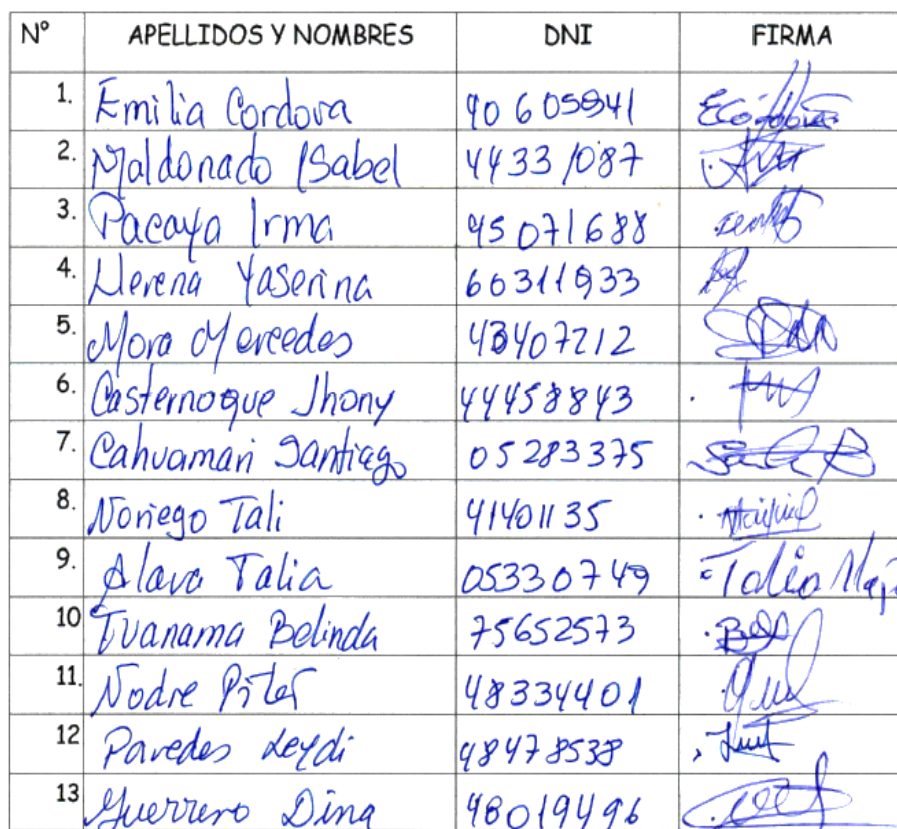 Nº APELLIDOS Y NOMBRES DNI FIRMA
1. Emilia Cordova 40605941
2. Maldonado Isabel 44331087
3. Pacaya Irma 45071688
4. Llerena Yaserina 60311933
5. Mora Mercedes 43407212
6. Casternoque Jhony 44458843
7. Cahuamari Santiago 05283375
8. Noriego Tali 41401135
9. Alava Talia 05330749 Talia
10 Tuanama Belinda 75652573
11. Nodre Piter 48334401
12 Paredes Leydi 48478538
13 Guerrero Dina 48019496